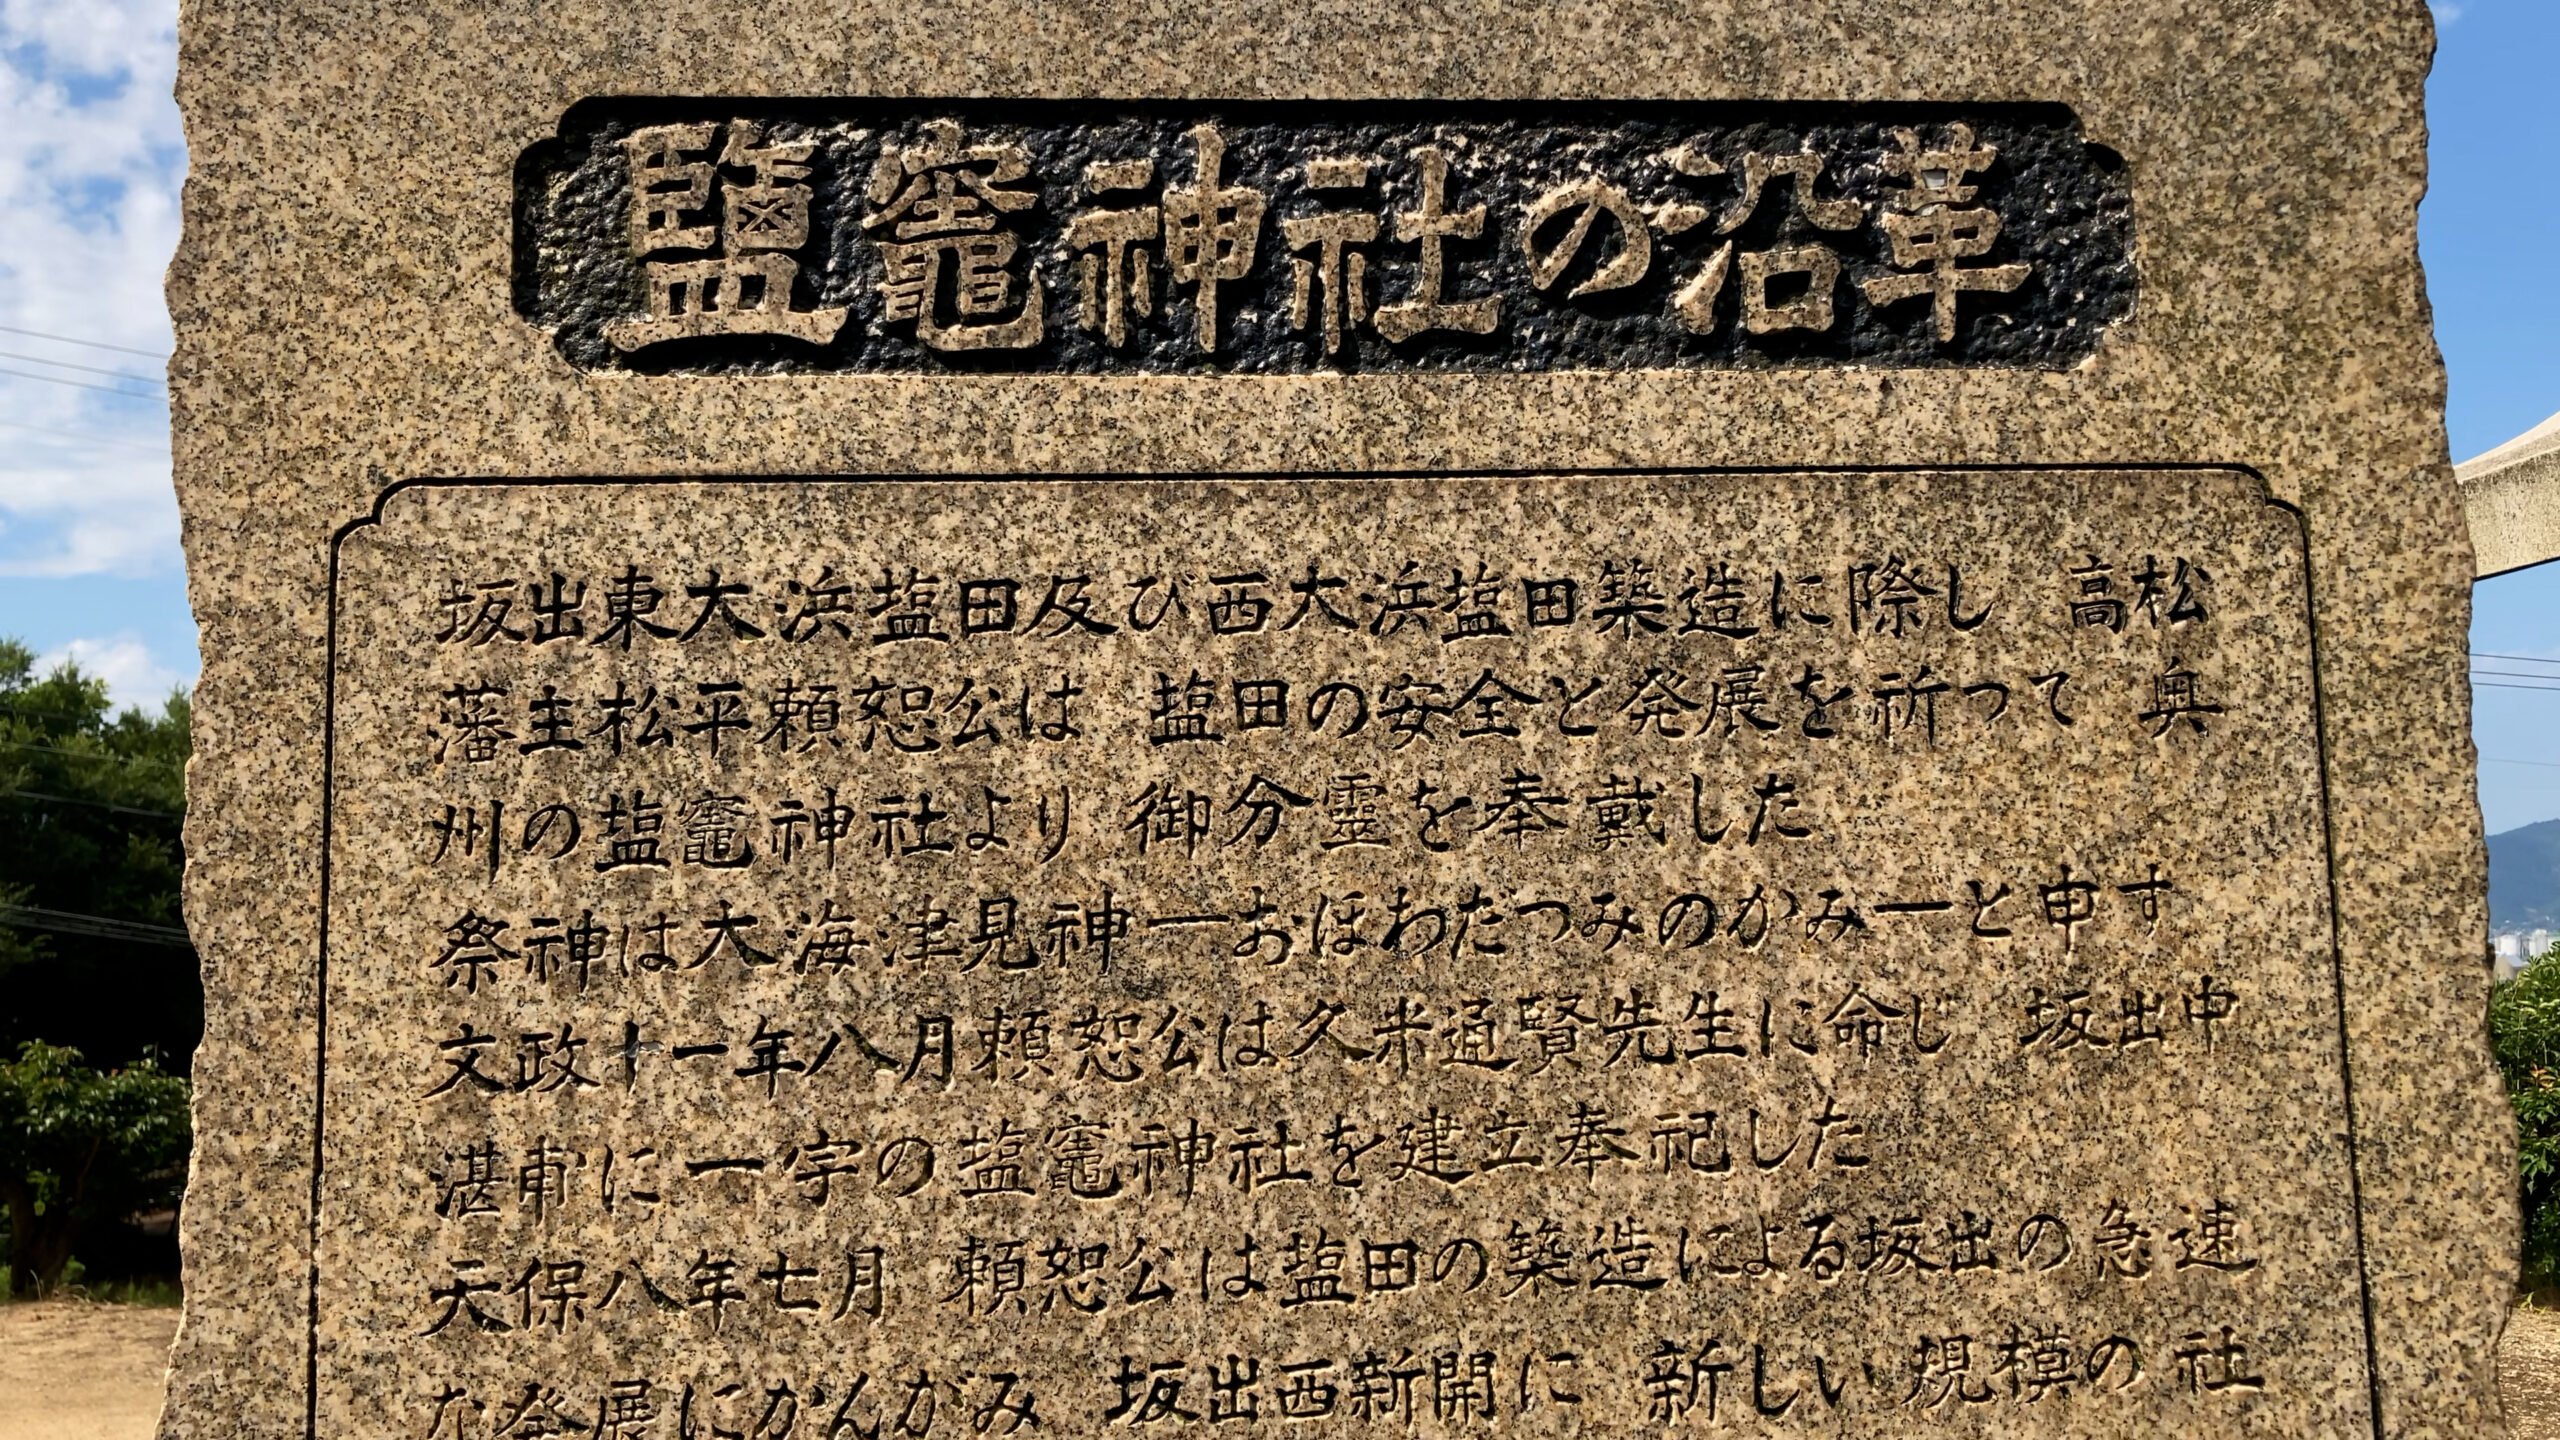 鹽竈神社の沿革
坂出東大浜塩田及び西大浜塩田築造に際し　高松
藩主松平頼恕公は　塩田の安全と発展を祈って　奥
州の塩竈神社より　御分霊を奉戴した
祭神は大海津見神―おほわだつみのかみ―と申す
文政十一年八月頼恕公は久米通賢先生に命じ　坂出中
湛甫に一宇の塩竈神社を建立奉祀した
天保八年七月　頼恕公は塩田の築造による坂出の急速
な発展にかんがみ　坂出西新開に　新しい規模の社